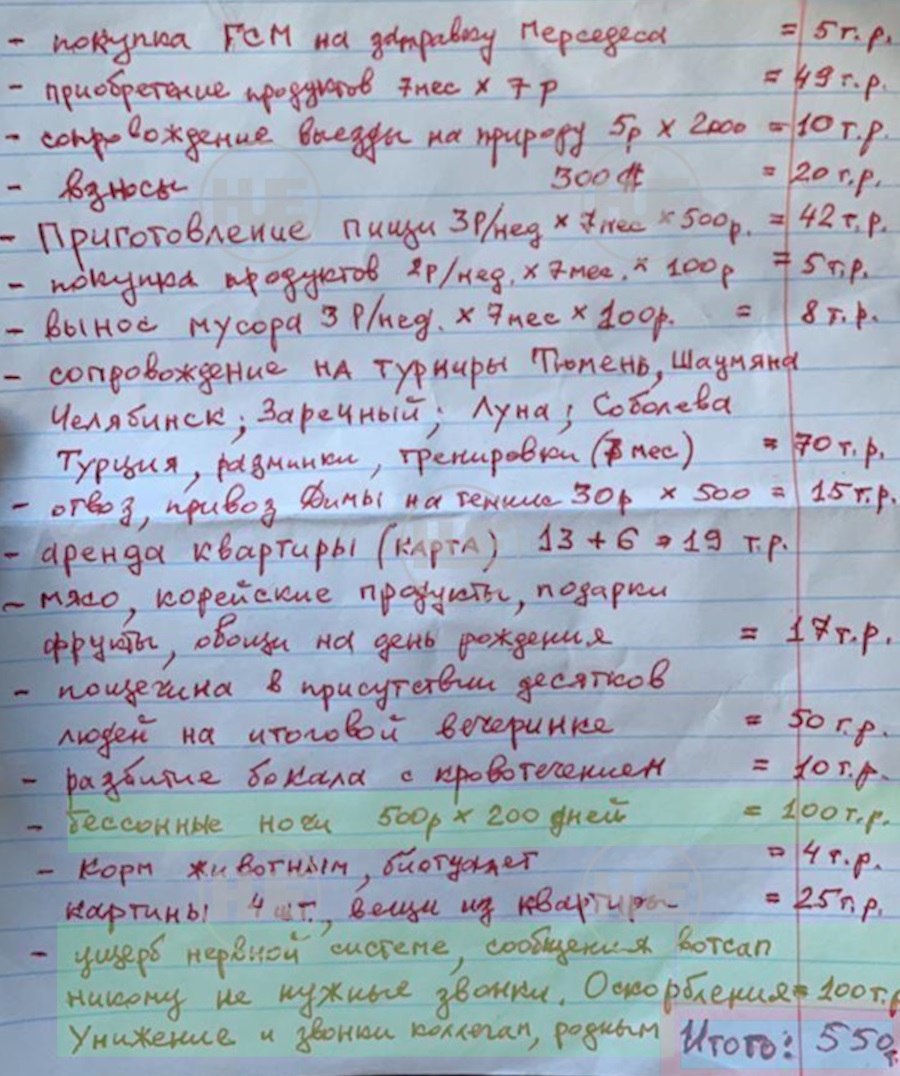 - покупка ГСМ на заправку Мерседеса = 5 т.р.
- приобретение продуктов 7мес х 7 р = 49 т.р.
- сопровождение выезды на природу 5р х 2000 = 10 т.р.
- взносы 300 = 20 т.р.
- Приготовление пищи 3Р/нед х 7мес х 500р. = 42 т.р.
- покупка продуктов 2Р/нед. х 7мес. х 100р = 5т.р.
- вынос мусора 3 Р/нед. х 7мес х 100р. = 8 т.р.
- сопровождение на турниры Тюмень, Шаумяна
Челябинск; Заречный; Луна; Соболева
Турция, разминки, тренировки (7 мес) = 70 т.р.
- отвоз, привоз Димы на теннис 30р х 500 = 15 т.р.
- аренда квартиры (КАРТА) 13 + 6 = 19 т.р.
- мясо, корейские продукты, подарки
фрукты, овощи на день рождения = 17 т.р.
- пощечина в присутствии десятков
людей на итоговой вечеринке = 50 т.р.
- разбитие бокала с кровотечением = 10 т.р.
- бессонные ночи 500р х 200 дней = 100 т.р.
- Корм животным, биотуалет = 4 т.р.
картины 4 шт., вещи из квартиры = 25 т.р.
- ущерб нервной системе, сообщения вотсап
никому не нужные звонки. Оскорбления = 100 т.р
Унижение и звонки коллегам, родным Итого: 550 т.